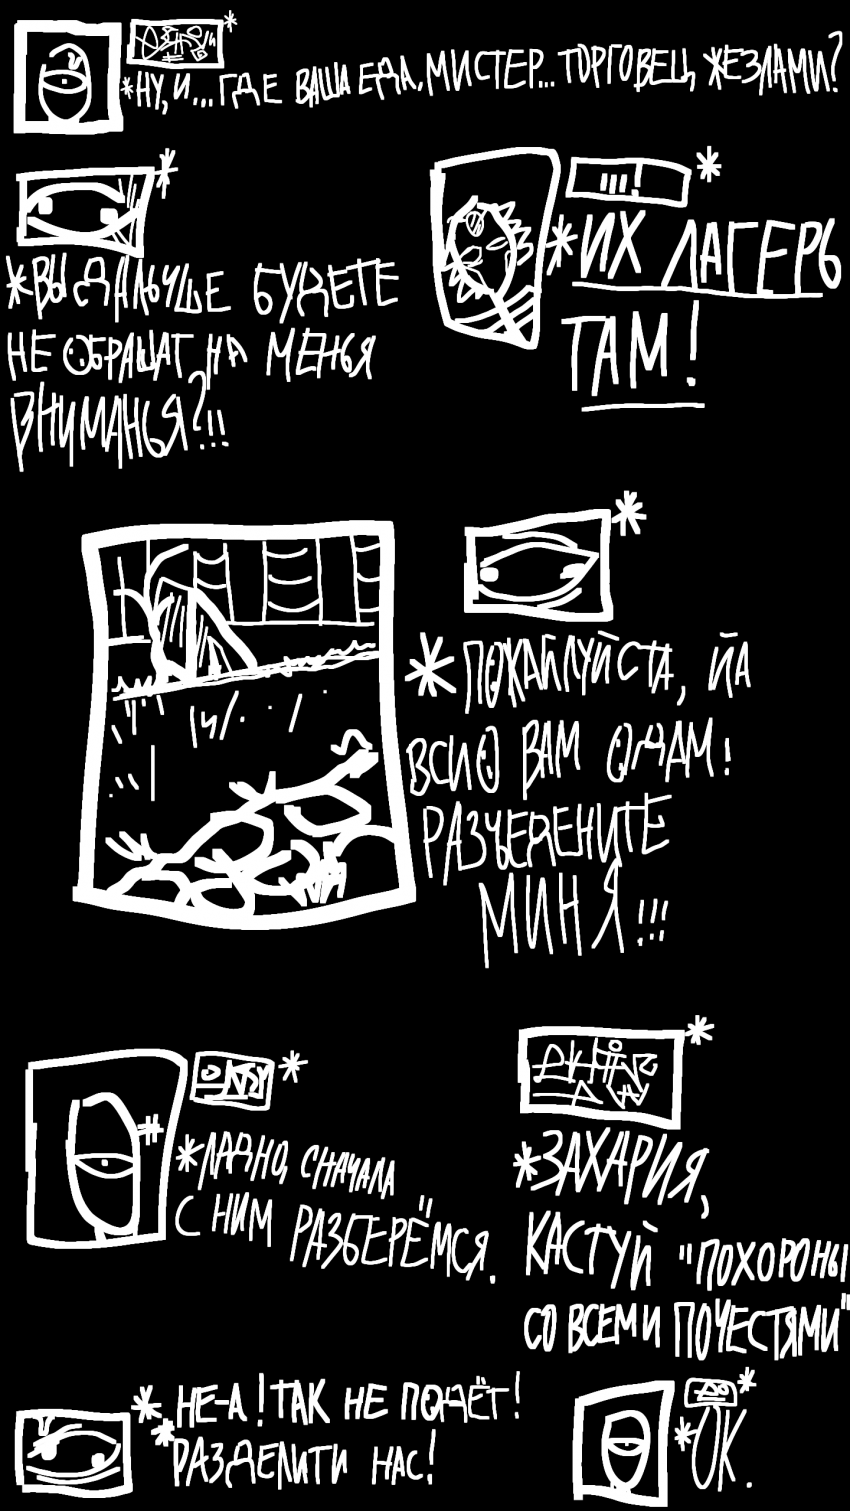 *НУ, И... ГДЕ ВАША ЕДА, МИСТЕР... ТОРГОВЕЦ ЖЕЗЛАМИ?
*ВЫ ДАЛЬЧШЕ БУДЕТЕ
НЕ ОБРАЩАТ НА МЕНЬЯ
ВНИМАНЬЯ?!!!
...!
*ИХ ЛАГЕРЬ
ТАМ!
*ПОЖАЙЛУЙСТА, ЙА
ВСИО ВАМ ОДАМ!
РАЗЪЕДЕНИТЕ
МИНЯ!!!
*ЛАДНО, СНАЧАЛА
С НИМ РАЗБЕРЁМСЯ.
*ЗАХАРИЯ,
КАСТУЙ "ПОХОРОНЫ
СО ВСЕМИ ПОЧЕСТЯМИ"
*НЕ-А! ТАК НЕ ПОЙДЁТ!
*РАЗДЕЛИТИ НАС!
*ОК.